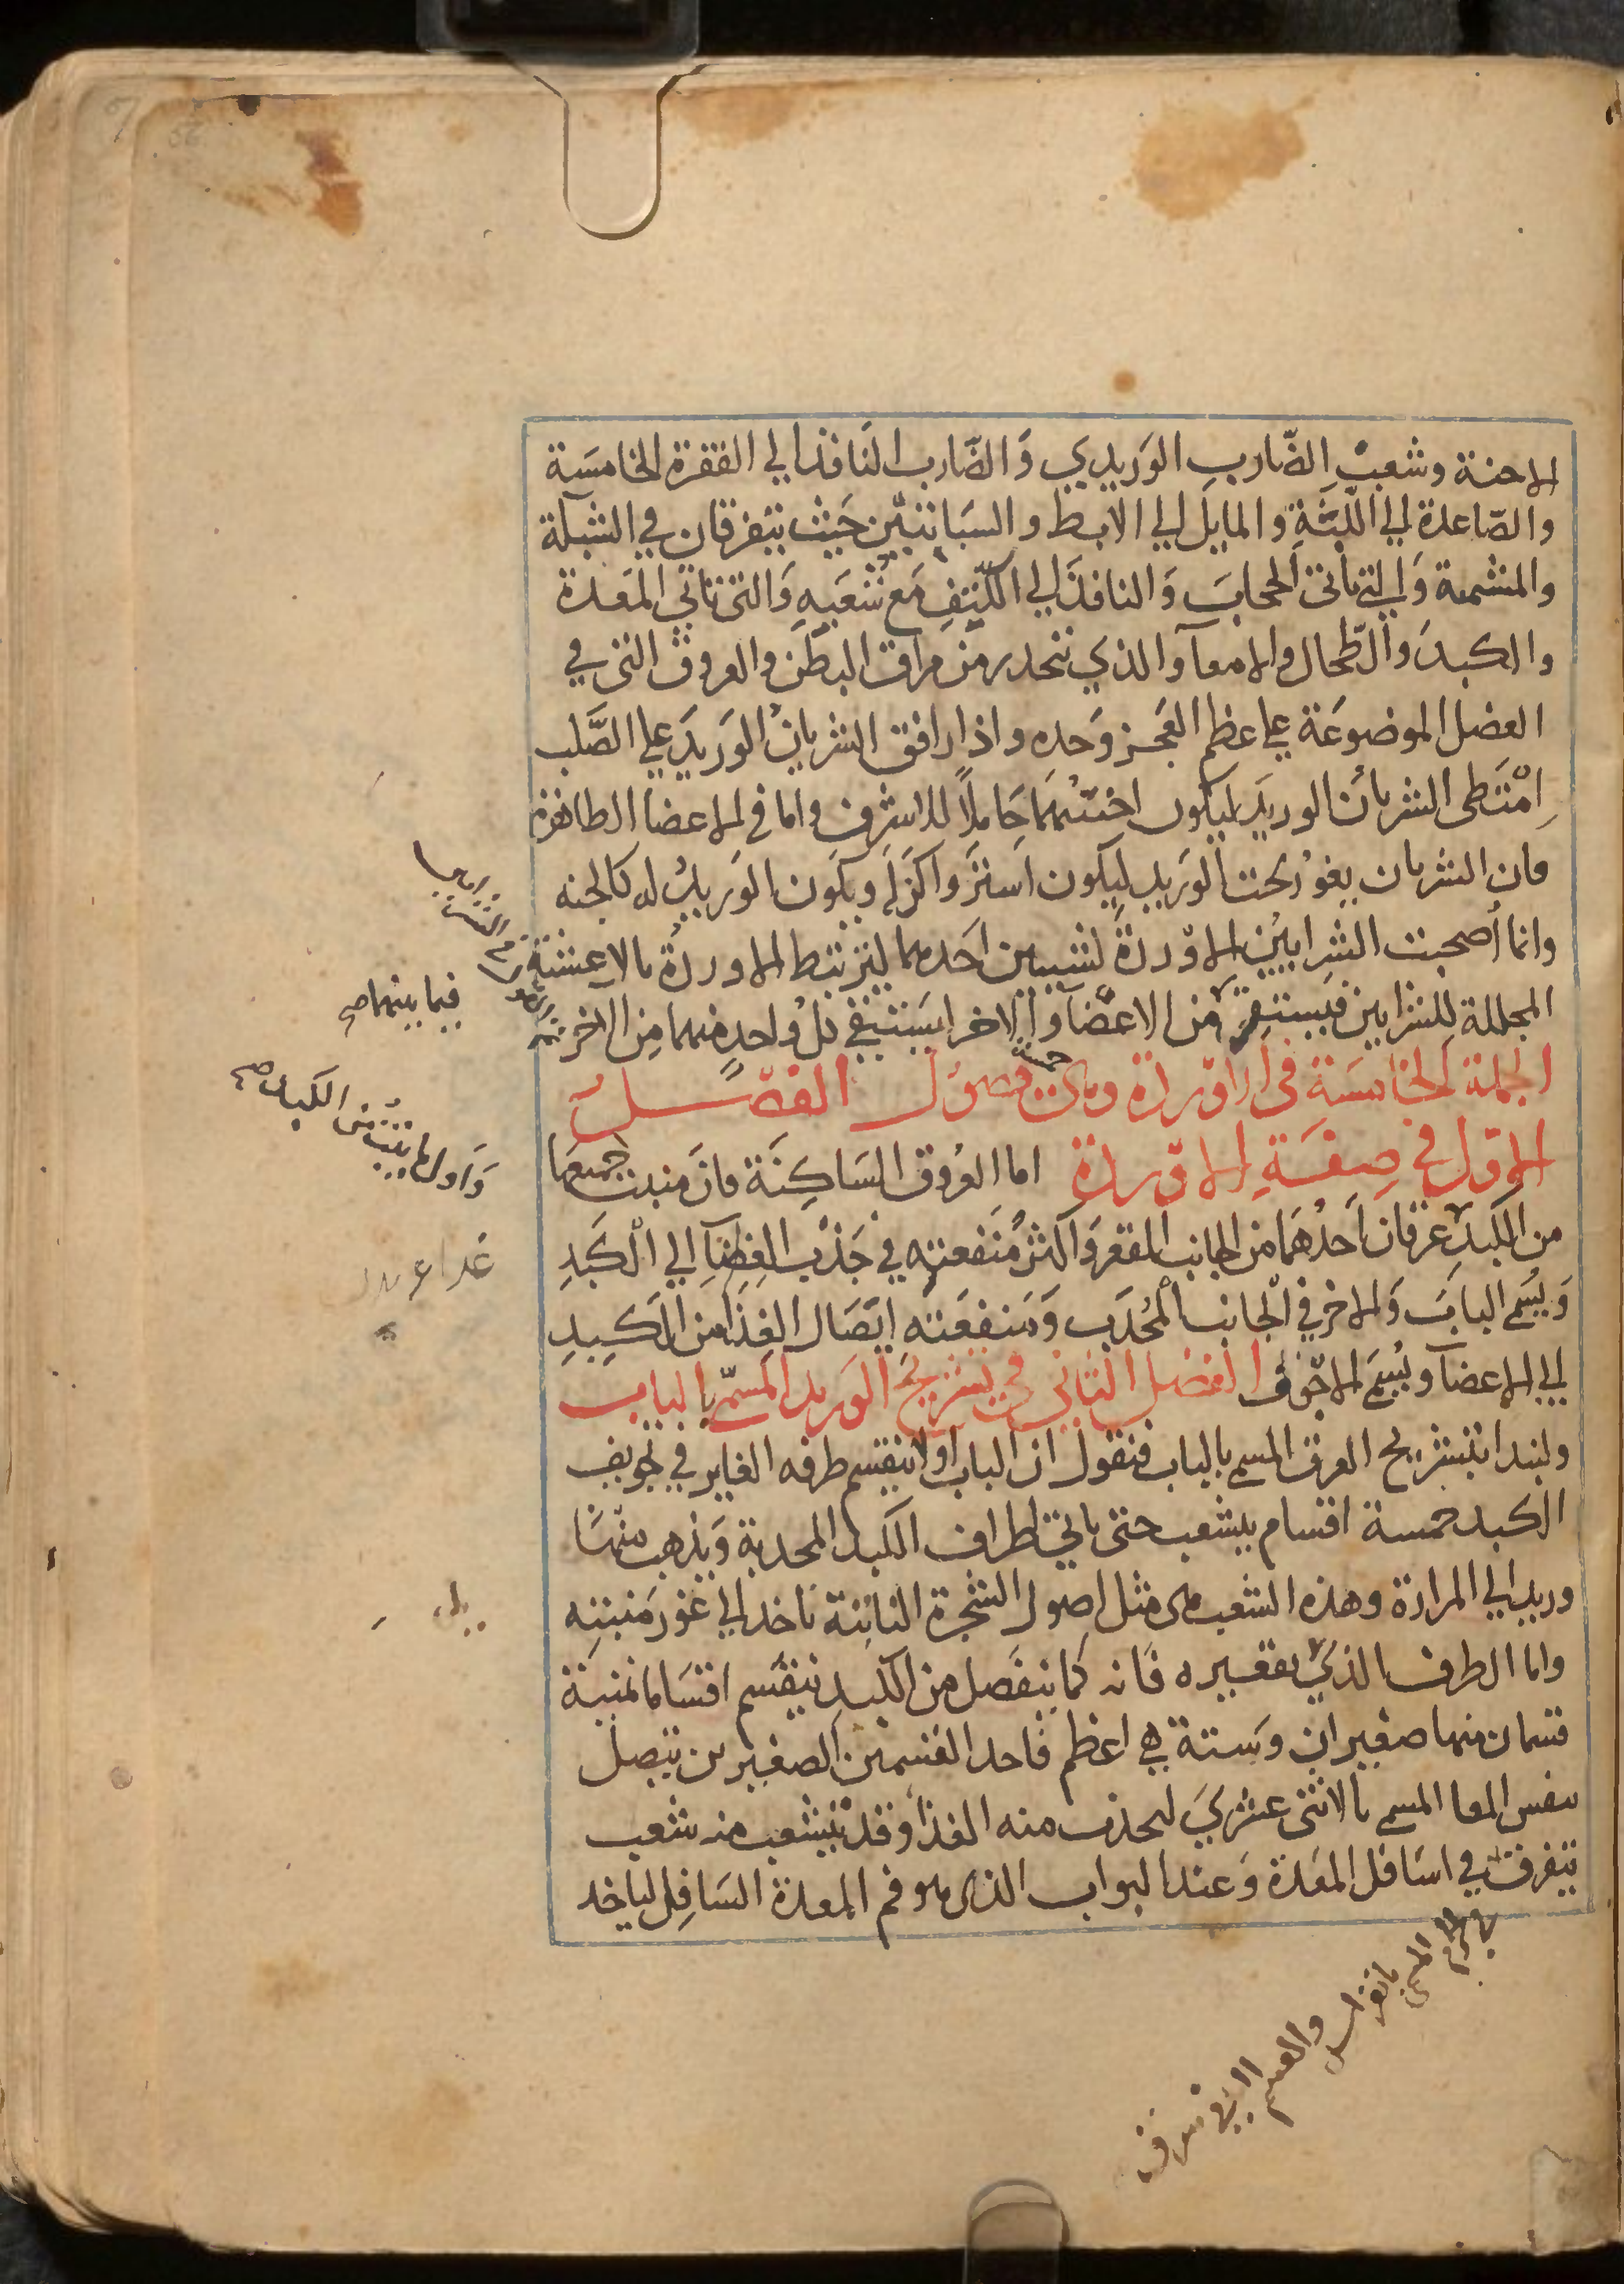 الاجنة وشعب الضّارب الوَريدي وَالضّارب النَافذ الي الفقرة الخامسَة
والصّاعدة الي اللَّبَّةِ والمايل الي الابط والسَباتيَّين حَيث يتفرقان في الشبكة
والمشمة وَالتي تاتي الحجابَ وَالنافذ الي الكتِفِ مَع شعَبهِ وَالتي تاتي المَعدة
والكبدَ والطّحال والامعآ والذي تنحدر من مراق البطَن والعروق التي في
العضل الموضوعَة علي عظم العَجز وَحده واذا رافق الشريانُ الوَريدَ علي الصَّلب
اِمْتَطى الشريانُ الوريدَ ليكون اخسّهمَا حَاملاً للاشرف واما في الاعضا الظاهرة
فان الشريان يغوُر تحت الوَريد ليكون استرَ واكنَ له ويكَون الوَريدُ له كالجنه
وانما أصحبت الشرايينُ الاوْردةَ لشيين احَدهما ليرتبط الاوردةُ بالاغشية
المجللة للشرايين فيستقر من الاعضآ والاخر ليَستقي كلُ واحدٍ منهما مِن الاخر
فيما بينهما صح
الجملة الخامسَة في الاوردة وهي خمسة فصوُل الفصْــل
الاوّل في صِفَةِ الاوردة اما العرُوق السَاكِنَة فانَ منبت جميعهَا
من الكبد عرقان احَدهُمَا من الجانب المقعر وَاكثرُ مَنفعته في جَذْب الغِذَآ الي الْكَبَدِ
وَاول ما ينبت من الكبد صح
وَيسَمي البابَ وَالاخر في الْجانب المُحدَب وَمَنفعَته ايَصَال الغِذَا من الكَبِدِ
الي الاعضآ ويُسَمَي الاجْوَفَ الفصَل الثاني في تشريح الوَريد المسَمّي بالباب
ولنبدا بتشريح العرق المسمي بالباب فنقول ان الباب اولا ينقسم طرفه الغاير في تجويف
الكبد خمسة اقسام يتشعب حتى ياتي اطراف الكبد المحدبة وَيذهب منهَا
وريد الي المرارة وهذه الشعب هي مثل اصول الشجرة النابتة تاخد الي غوَر مَنبتِه
واما الطرف الذي يقعيره فَانه كما ينفَصل من الكبدِ ينقسَم اقسَاما ثمنية
قسمان منها صغيران وَستة هي اعظم فاحد القسمين الصغيرين يتصل
بنفس المعا المسمي بالاثني عشريَ ليجذب منه الغذا وقد يتشعب منه شعب
يتفرق في اسَافل المعَدة وَعند البواب الذي هو فم المعدة السَافِل لياخد
والقسم الثاني